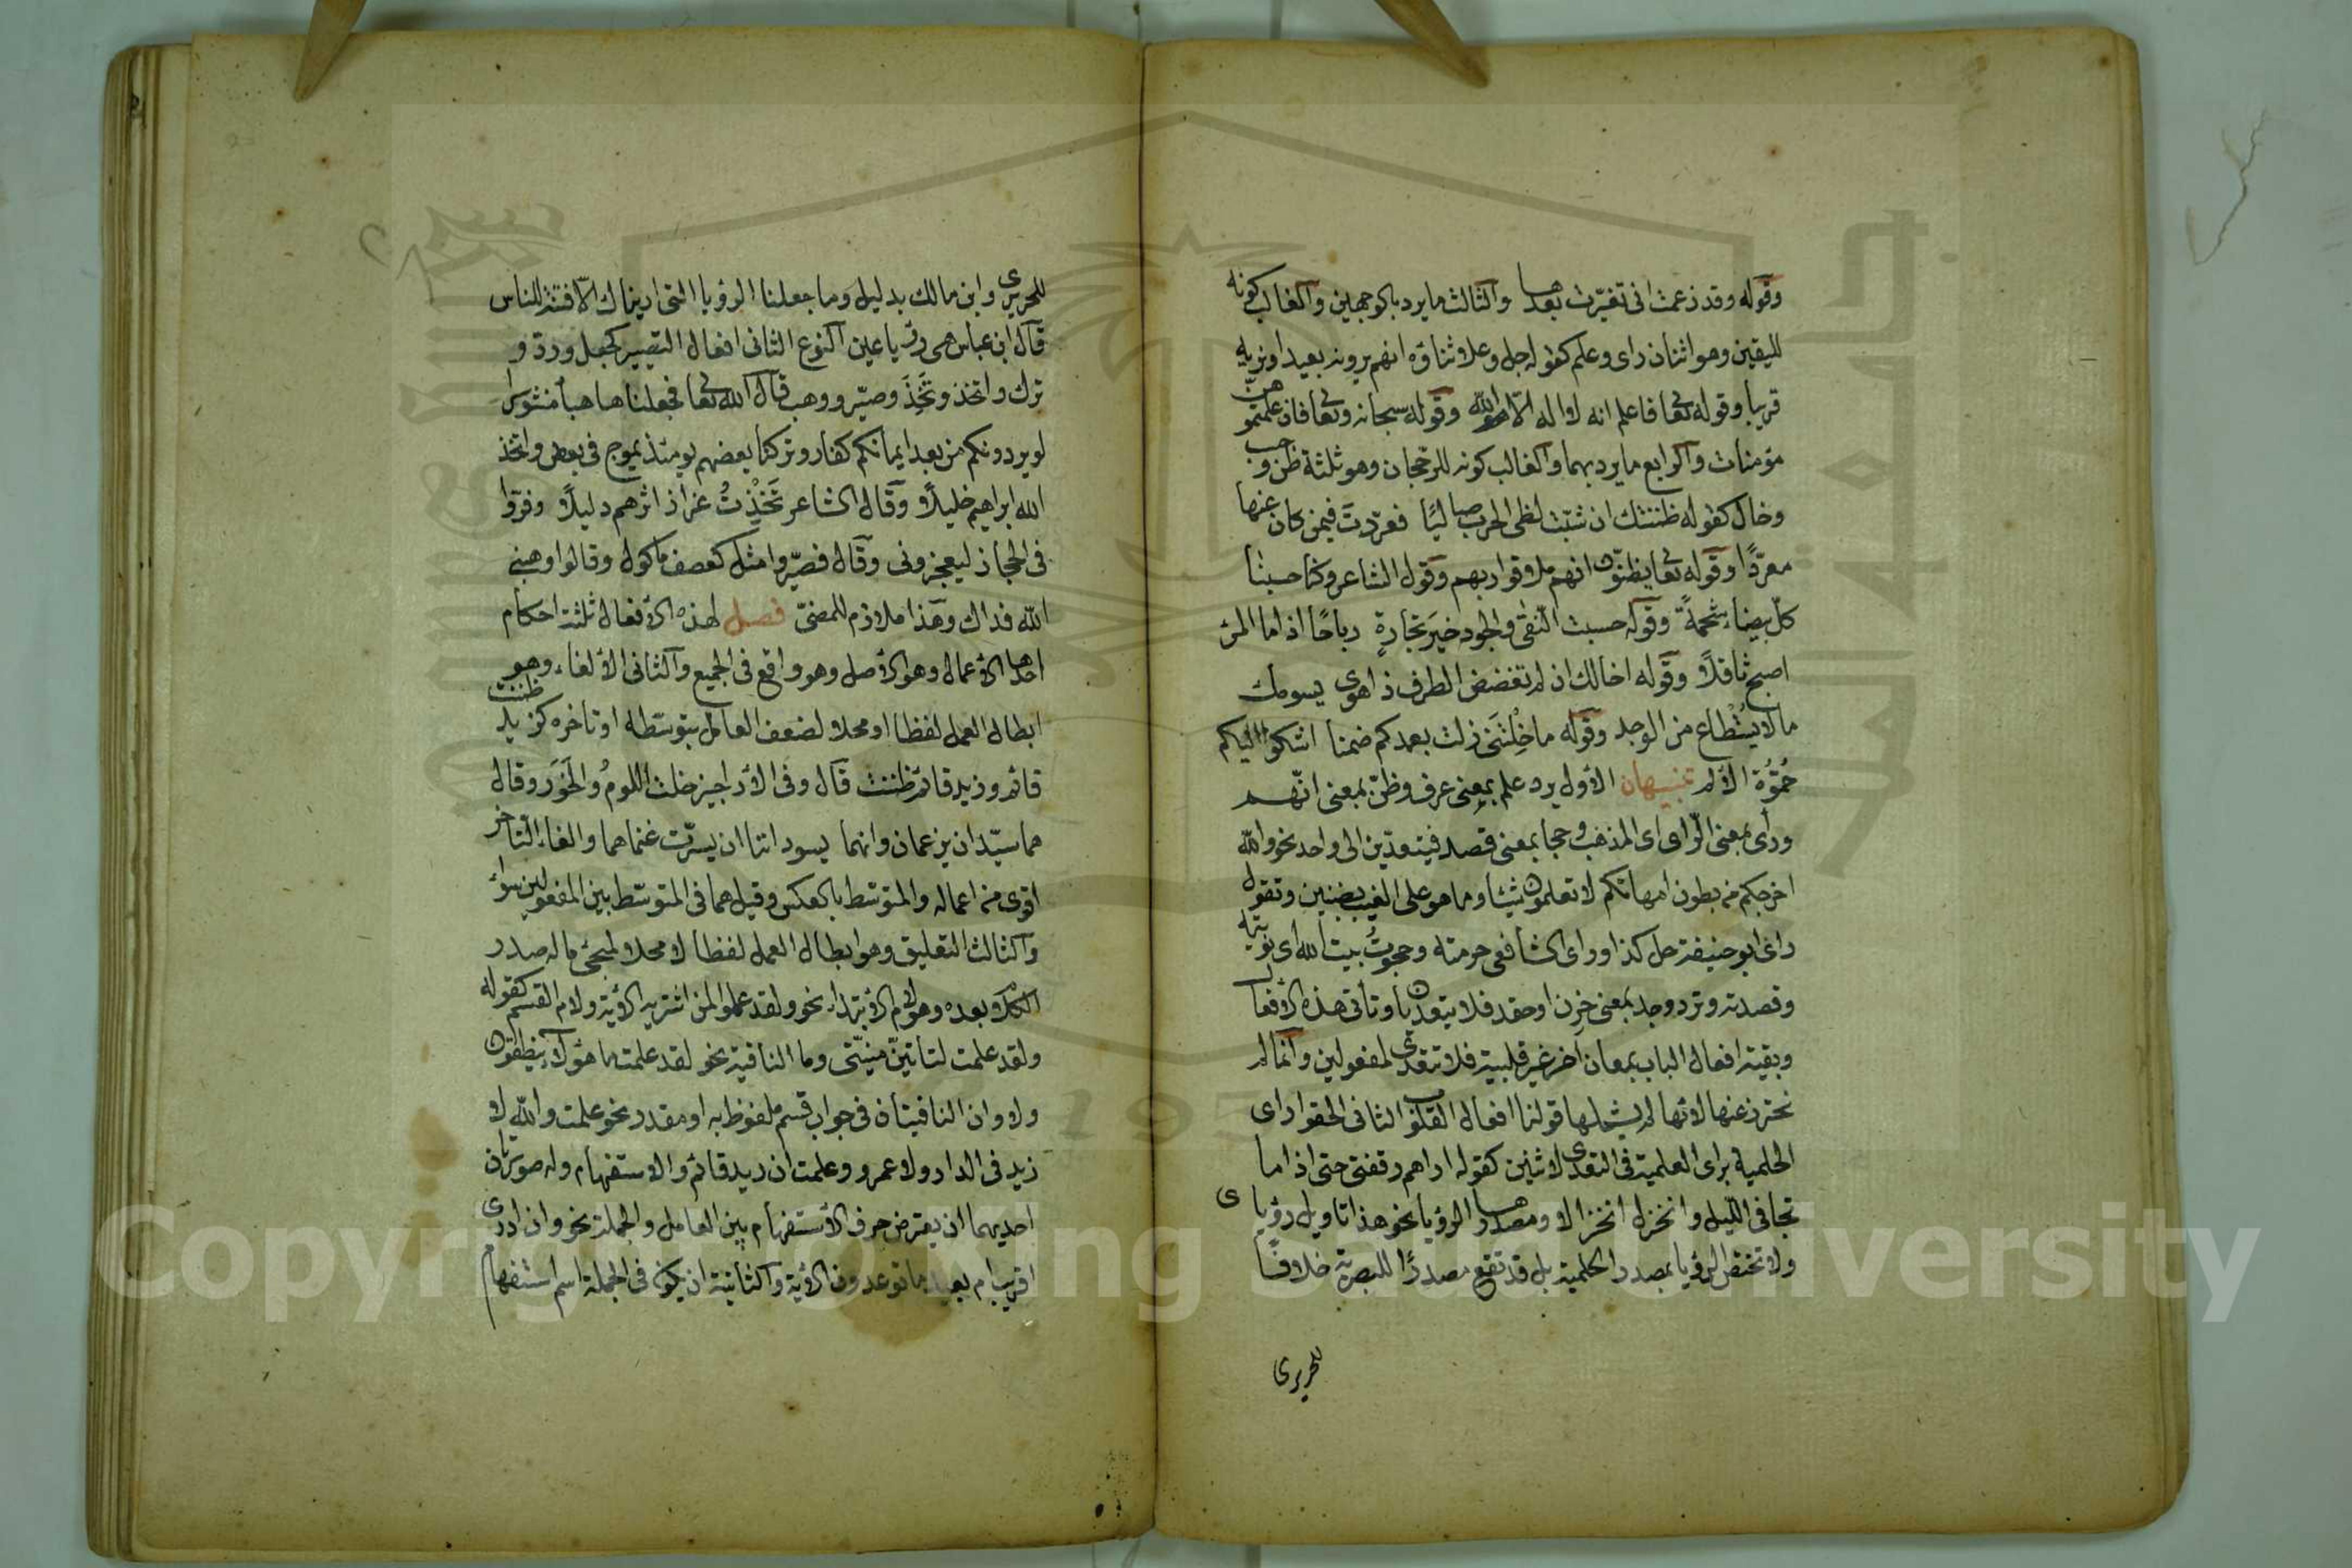 وقوله وقد زعمت اني تغيرت بعدها والثالث ما يرد بالوجهين والغالب كونه
لليقين وهو اثنان راى وعلم كقوله جل وعلا ثناؤه انهم يرونه بعيدا ونريه
قريبا وقوله تعالى فاعلم انه لا اله الا الله وقوله سبحانه وتعالى فان علمتموهن
مؤمنات والرابع ما يرد بهما والغالب كونه للرجحان وهو ثلثة ظن وحسب
وخال كقوله ظننتك ان شبت لظى الحرب صاليًا فعردتَ فيمن كان عنها
معردًا وقوله تعالى يظنون انهم ملاقوا ربهم وقول الشاعر وكنا حسبنا
كل بيضاء شحمةً وقوله حسبت التقى والجود خيرَ تجارةٍ رباحًا اذا ما المرء
اصبح ثاقلًا وقوله اخالك ان لم تغضض الطرف ذا هوى يسومك
ما لا يُسْطاع من الوجد وقوله ما خِلْتُني زلت بعدكم ضمنا اشكو اليكم
حُمُوَّة الألم تنبيهان الأول يرد علم بمعنى عرف وظن بمعنى اتهم
ورأى بمعنى الرأى اى المذهب وحجا بمعنى قصد فيتعدين الى واحد نحو والله
اخرجكم من بطون امهاتكم لا تعلمون شيئا وما هو على الغيب بضنين وتقول
راى ابو حنيفة حل كذا وراى الشافعي حرمته وحجوتُ بيت الله اى نويته
وقصدته وترد وجد بمعنى حزن او حقد فلا يتعديان وتأتي هذه الأفعال
وبقية افعال الباب بمعان اخر غير قلبية فلا تتعدى لمفعولين وانما لم
نحترز عنها لانها لم يشملها قولنا افعال القلوب الثاني الحقوا راى
الحلمية براى العلمية في التعدى لاثنين كقوله اراهم رفقتي حتى اذا ما
تجافى الليل وانخزل انخزالا ومصدرها الرؤيا نحو هذا تاويل رؤياى
ولا تختص الرؤيا بمصدر الحلمية بل قد تقع مصدرًا للبصرية خلافًا
للحريرى
للحريرى وابن مالك بدليل وما جعلنا الرؤيا التي اريناك الا فتنة للناس
قال ابن عباس هي رؤيا عين النوع الثاني افعال التصيير كجعل ورد و
ترك واتخذ وتَخِذَ وصير ووهب قال الله تعالى فجعلناها هباء منثورا
لو يردونكم من بعد ايمانكم كفارا وتركنا بعضهم يومئذ يموج في بعض واتخذ
الله ابراهيم خليلًا وقال الشاعر تَخِذْتُ غراز اثرهم دليلًا وفروا
في الحجاز ليعجزوني وقال فصيروا مثل كعصف ماكول وقالوا وهبني
الله فداك وهذا ملازم للمضي فصل لهذه الأفعال ثلثة احكام
احدها الأعمال وهو الأصل وهو واقع في الجميع والثاني الألغاء وهو
ابطال العمل لفظا او محلا لضعف العامل بتوسطه او تاخره كزيد ظننت
قائم وزيد قائم ظننت قال وفي الأراجيز خلت اللومُ والخَوَر وقال
هما سيدان يزعمان وانهما يسوداننا ان يسرت غنماهما والغاء التأخر
اقوى من اعماله والمتوسط بالعكس وقيل هما في المتوسط بين المفعولين سواء
والثالث التعليق وهو ابطال العمل لفظا لا محلا لمجئ ماله صدر
الكلام بعده وهو لام الأبتداء نحو ولقد علموا لمن اشتريه الأية ولام القسم كقوله
ولقد علمت لتاتين منيتي وما النافية نحو لقد علمت ما هؤلاء ينطقون
ولا وان النافيتان في جواب قسم ملفوظ به او مقدر نحو علمت والله لا
زيد في الدار ولا عمرو وعلمت ان زيد قائم والاستفهام وله صورتان
احديهما ان يعترض حرف الأستفهام بين العامل والجملة نحو وان ادرى
اقريب ام بعيد ما توعدون الأية والثانية ان يكون في الجملة اسم استفهام
Copyright © King Saud University